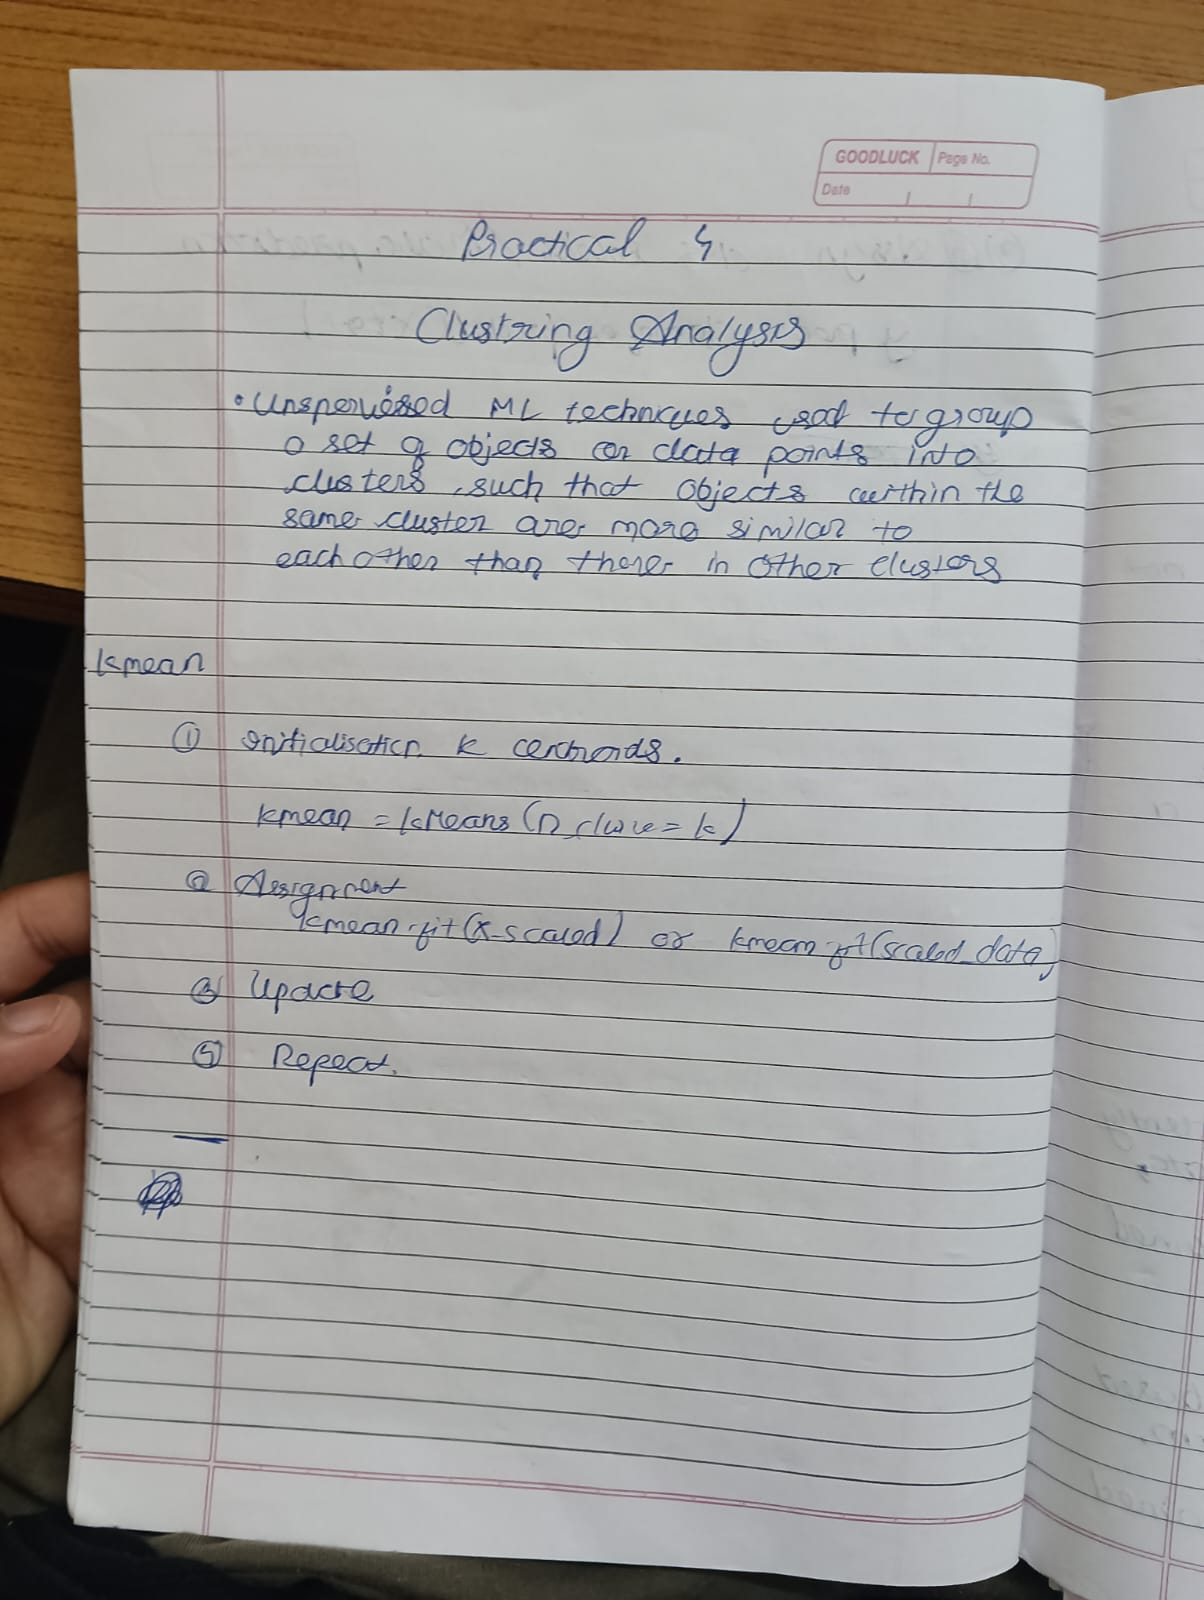 GOODLUCK Page No.
Date
Practical 4
Clustring Analysis
• Unspervised ML techniques used to group
a set of objects or data points into
clusters, such that objects within the
same cluster are more similar to
each other than there in other clusters
kmean
① Initialisation k centroids.
kmean = kMeans(n_ = k)
② Assignment
kmean.fit(x_scaled) or kmean.fit(scaled_data)
③ Update
⑤ Repeat.